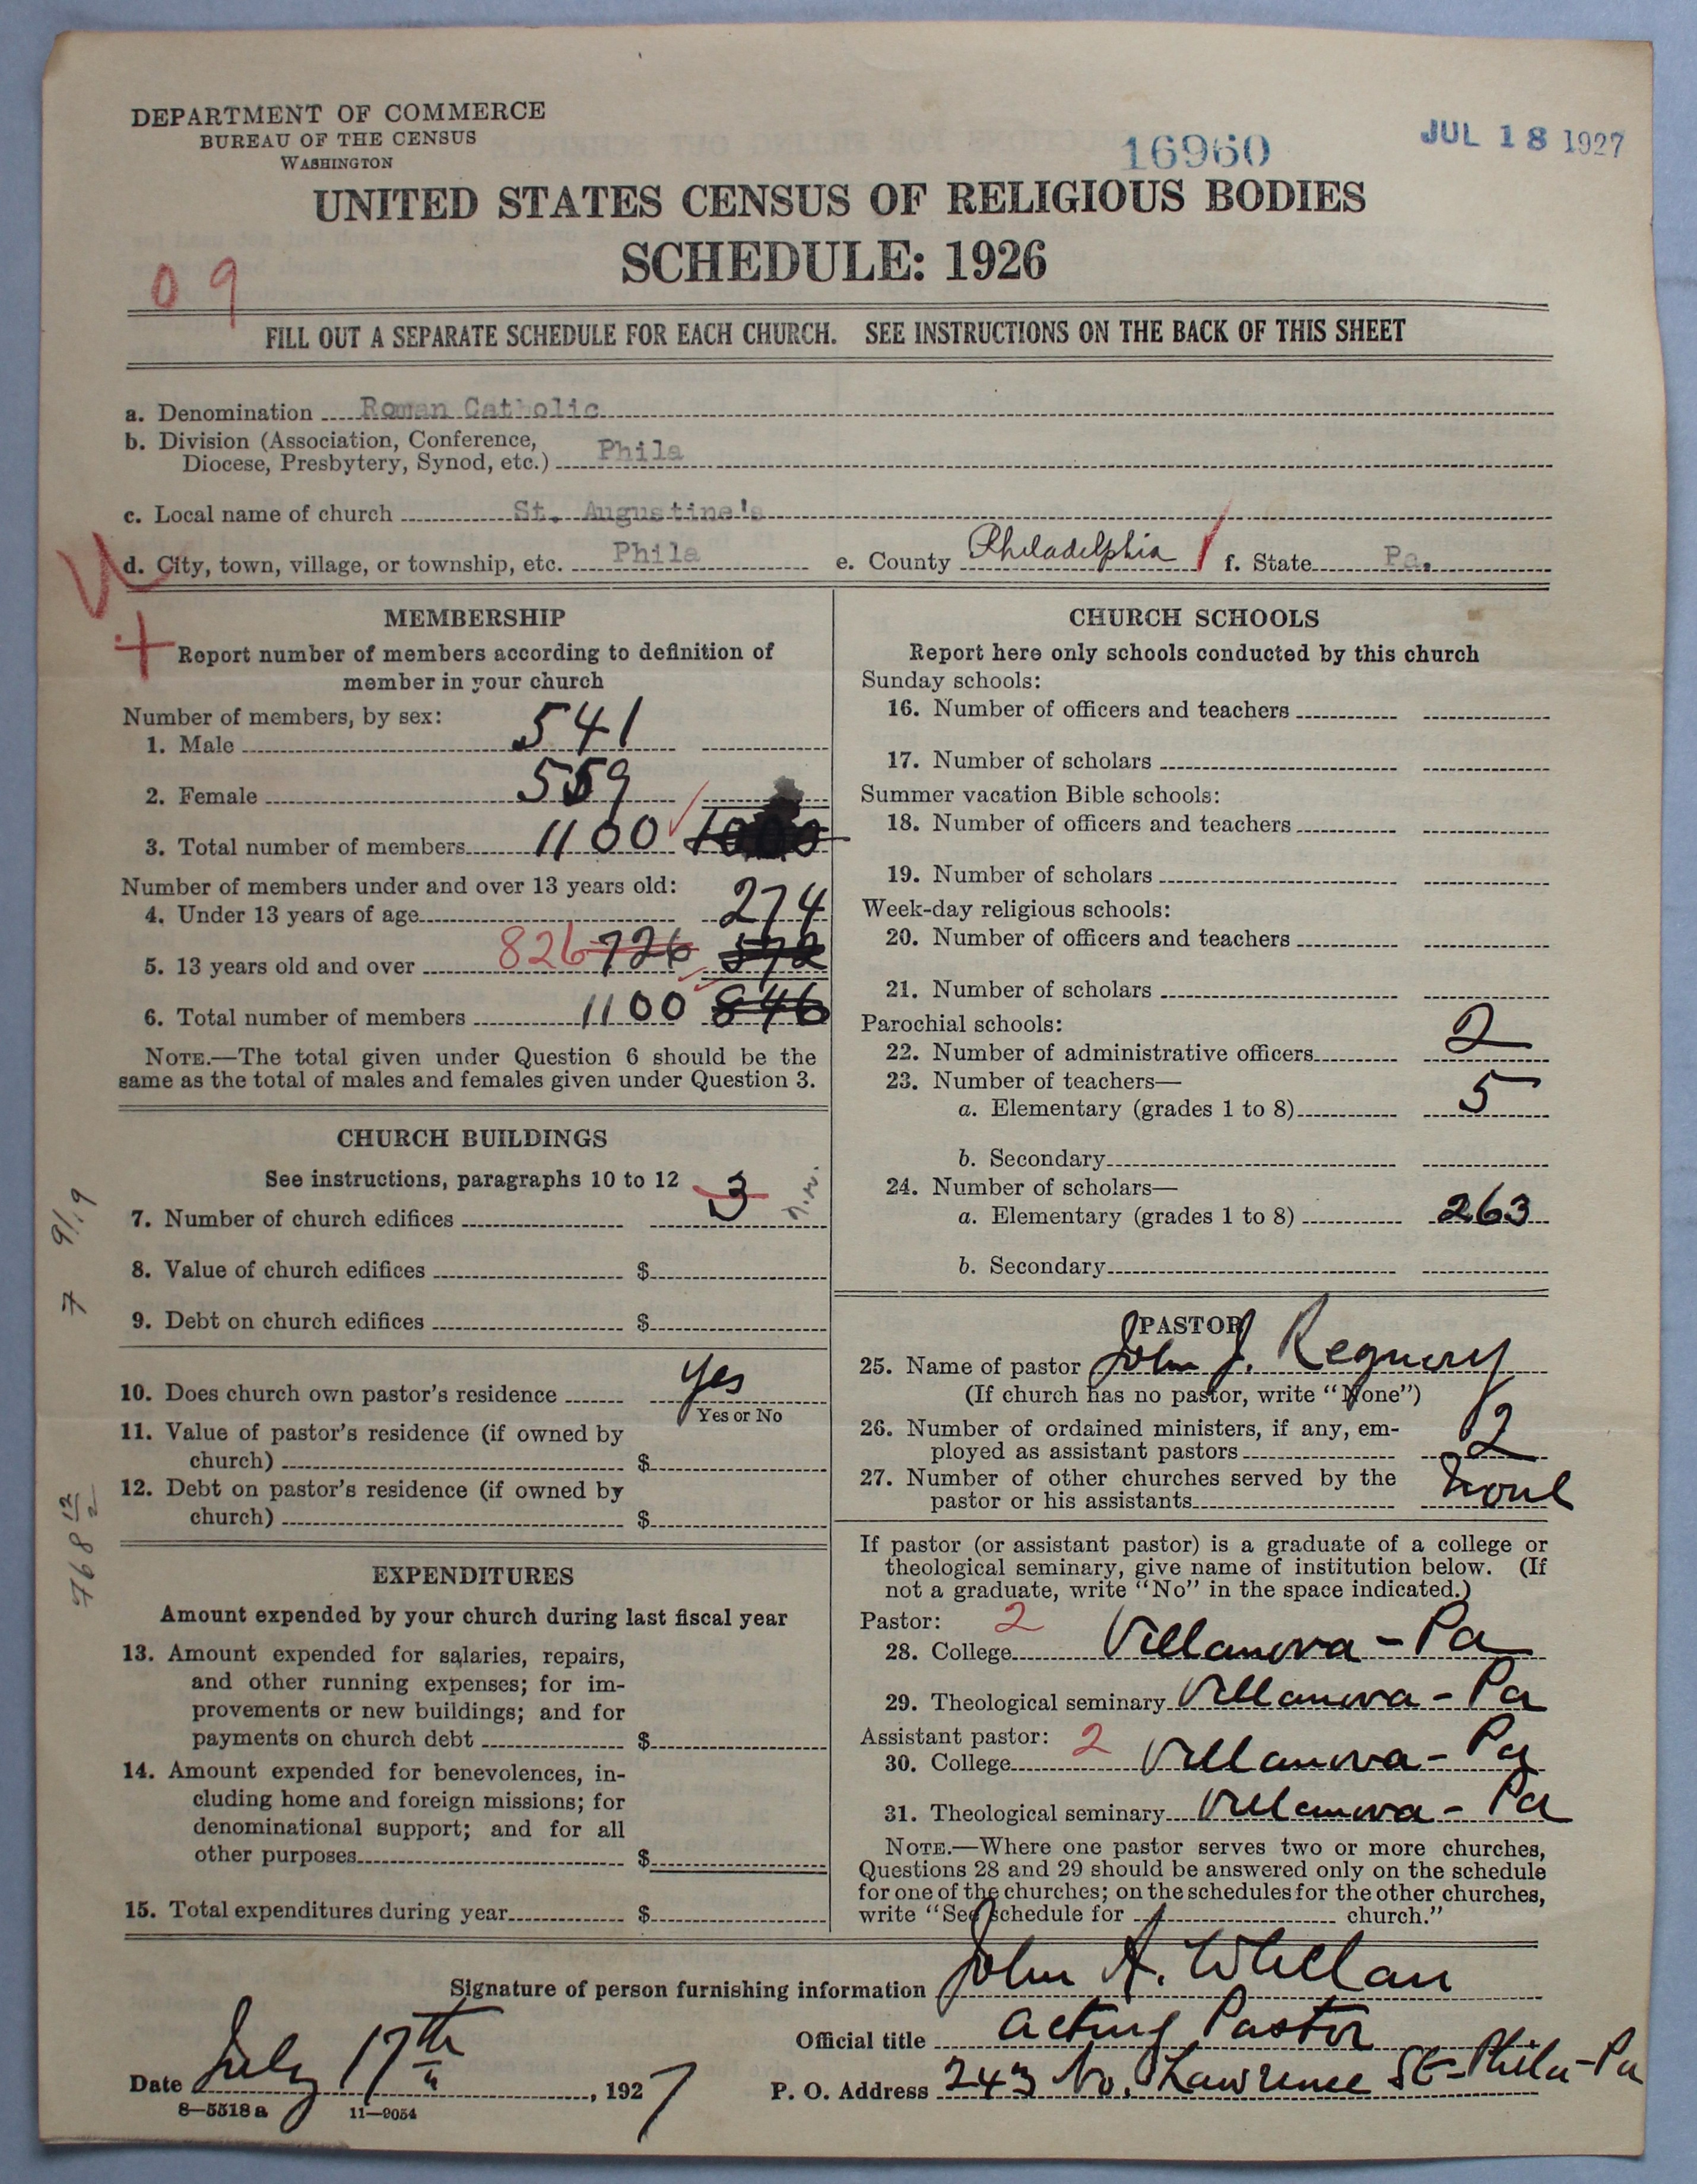 DEPARTMENT OF COMMERCE
BUREAU OF THE CENSUS
WASHINGTON
16960
JUL 18 1927
UNITED STATES CENSUS OF RELIGIOUS BODIES
SCHEDULE: 1926
09
FILL OUT A SEPARATE SCHEDULE FOR EACH CHURCH. SEE INSTRUCTIONS ON THE BACK OF THIS SHEET
a. Denomination Roman Catholic
b. Division (Association, Conference,
Diocese, Presbytery, Synod, etc.) Phila
c. Local name of church St. Augustine's
d. City, town, village, or township, etc. Phila e. County Philadelphia f. State Pa.
MEMBERSHIP
Report number of members according to definition of
member in your church
Number of members, by sex:
1. Male 541
2. Female 559
3. Total number of members 1100 1000
Number of members under and over 13 years old:
4. Under 13 years of age 274
5. 13 years old and over 826 726 572
6. Total number of members 1100 846
NOTE.—The total given under Question 6 should be the
same as the total of males and females given under Question 3.
CHURCH BUILDINGS
See instructions, paragraphs 10 to 12
7. Number of church edifices 3
8. Value of church edifices $
9. Debt on church edifices $
10. Does church own pastor's residence Yes
Yes or No
11. Value of pastor's residence (if owned by
church) $
12. Debt on pastor's residence (if owned by
church) $
EXPENDITURES
Amount expended by your church during last fiscal year
13. Amount expended for salaries, repairs,
and other running expenses; for im-
provements or new buildings; and for
payments on church debt $
14. Amount expended for benevolences, in-
cluding home and foreign missions; for
denominational support; and for all
other purposes $
15. Total expenditures during year $
7 9/19
CHURCH SCHOOLS
Report here only schools conducted by this church
Sunday schools:
16. Number of officers and teachers
17. Number of scholars
Summer vacation Bible schools:
18. Number of officers and teachers
19. Number of scholars
Week-day religious schools:
20. Number of officers and teachers
21. Number of scholars
Parochial schools:
22. Number of administrative officers 2
23. Number of teachers—
a. Elementary (grades 1 to 8) 5
b. Secondary
24. Number of scholars—
a. Elementary (grades 1 to 8) 263
b. Secondary
PASTOR
25. Name of pastor John J. Regnery
(If church has no pastor, write "None")
26. Number of ordained ministers, if any, em-
ployed as assistant pastors 2
27. Number of other churches served by the
pastor or his assistants none
If pastor (or assistant pastor) is a graduate of a college or
theological seminary, give name of institution below. (If
not a graduate, write "No" in the space indicated.)
Pastor: 2
28. College Villanova - Pa
29. Theological seminary Villanova - Pa
Assistant pastor: 2
30. College Villanova - Pa
31. Theological seminary Villanova - Pa
NOTE.—Where one pastor serves two or more churches,
Questions 28 and 29 should be answered only on the schedule
for one of the churches; on the schedules for the other churches,
write "See schedule for church."
Signature of person furnishing information John A. Whelan
Official title Acting Pastor
Date July 17th, 1927
P. O. Address 243 No. Lawrence St - Phila - Pa
8—5518a 11—9054